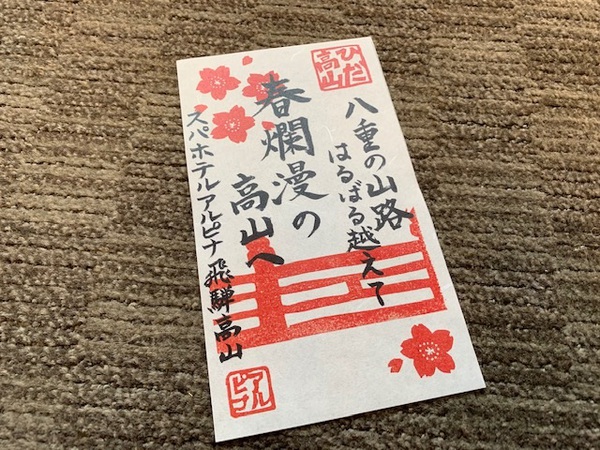 ひだ
高山
八重の山路
はるばる越えて
春爛漫の
高山へ
スパホテルアルピナ飛騨高山
アル
ピナ